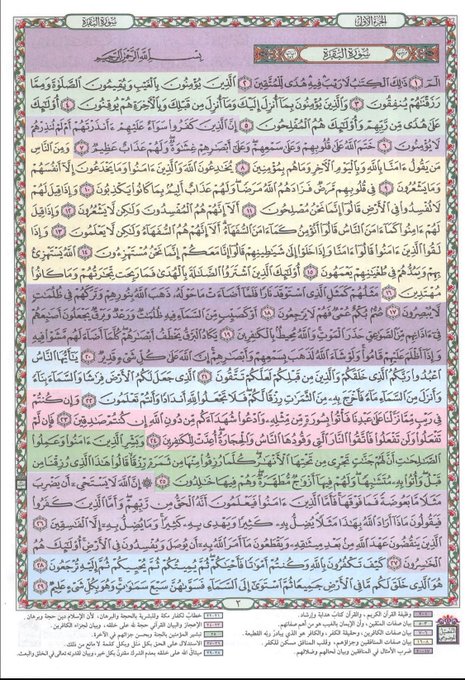 الجزء الأول
سورة البقرة
سُورَةُ البَقَرَةِ
بِسْمِ اللَّهِ الرَّحْمَٰنِ الرَّحِيمِ
الٓمٓ ١ ذَٰلِكَ الْكِتَٰبُ لَا رَيْبَ فِيهِ هُدًى لِّلْمُتَّقِينَ ٢ الَّذِينَ يُؤْمِنُونَ بِالْغَيْبِ وَيُقِيمُونَ الصَّلَوٰةَ وَمِمَّا
رَزَقْنَٰهُمْ يُنفِقُونَ ٣ وَالَّذِينَ يُؤْمِنُونَ بِمَآ أُنزِلَ إِلَيْكَ وَمَآ أُنزِلَ مِن قَبْلِكَ وَبِالْءَاخِرَةِ هُمْ يُوقِنُونَ ٤ أُو۟لَٰٓئِكَ
عَلَىٰ هُدًى مِّن رَّبِّهِمْ وَأُو۟لَٰٓئِكَ هُمُ الْمُفْلِحُونَ ٥ إِنَّ الَّذِينَ كَفَرُوا سَوَآءٌ عَلَيْهِمْ ءَأَنذَرْتَهُمْ أَمْ لَمْ تُنذِرْهُمْ
لَا يُؤْمِنُونَ ٦ خَتَمَ اللَّهُ عَلَىٰ قُلُوبِهِمْ وَعَلَىٰ سَمْعِهِمْ وَعَلَىٰٓ أَبْصَٰرِهِمْ غِشَٰوَةٌ وَلَهُمْ عَذَابٌ عَظِيمٌ ٧ وَمِنَ النَّاسِ
مَن يَقُولُ ءَامَنَّا بِاللَّهِ وَبِالْيَوْمِ الْءَاخِرِ وَمَا هُم بِمُؤْمِنِينَ ٨ يُخَٰدِعُونَ اللَّهَ وَالَّذِينَ ءَامَنُوا وَمَا يَخْدَعُونَ إِلَّآ أَنفُسَهُمْ
وَمَا يَشْعُرُونَ ٩ فِي قُلُوبِهِم مَّرَضٌ فَزَادَهُمُ اللَّهُ مَرَضًا وَلَهُمْ عَذَابٌ أَلِيمٌ بِمَا كَانُوا يَكْذِبُونَ ١٠ وَإِذَا قِيلَ لَهُمْ
لَا تُفْسِدُوا فِي الْأَرْضِ قَالُوٓا إِنَّمَا نَحْنُ مُصْلِحُونَ ١١ أَلَآ إِنَّهُمْ هُمُ الْمُفْسِدُونَ وَلَٰكِن لَّا يَشْعُرُونَ ١٢ وَإِذَا قِيلَ
لَهُمْ ءَامِنُوا كَمَآ ءَامَنَ النَّاسُ قَالُوٓا أَنُؤْمِنُ كَمَآ ءَامَنَ السُّفَهَآءُ أَلَآ إِنَّهُمْ هُمُ السُّفَهَآءُ وَلَٰكِن لَّا يَعْلَمُونَ ١٣ وَإِذَا
لَقُوا الَّذِينَ ءَامَنُوا قَالُوٓا ءَامَنَّا وَإِذَا خَلَوْا إِلَىٰ شَيَٰطِينِهِمْ قَالُوٓا إِنَّا مَعَكُمْ إِنَّمَا نَحْنُ مُسْتَهْزِءُونَ ١٤ اللَّهُ يَسْتَهْزِئُ
بِهِمْ وَيَمُدُّهُمْ فِي طُغْيَٰنِهِمْ يَعْمَهُونَ ١٥ أُو۟لَٰٓئِكَ الَّذِينَ اشْتَرَوُا الضَّلَٰلَةَ بِالْهُدَىٰ فَمَا رَبِحَت تِّجَٰرَتُهُمْ وَمَا كَانُوا
مُهْتَدِينَ ١٦ مَثَلُهُمْ كَمَثَلِ الَّذِي اسْتَوْقَدَ نَارًا فَلَمَّآ أَضَآءَتْ مَا حَوْلَهُ ذَهَبَ اللَّهُ بِنُورِهِمْ وَتَرَكَهُمْ فِي ظُلُمَٰتٍ
لَّا يُبْصِرُونَ ١٧ صُمٌّ بُكْمٌ عُمْيٌ فَهُمْ لَا يَرْجِعُونَ ١٨ أَوْ كَصَيِّبٍ مِّنَ السَّمَآءِ فِيهِ ظُلُمَٰتٌ وَرَعْدٌ وَبَرْقٌ يَجْعَلُونَ أَصَٰبِعَهُمْ
فِيٓ ءَاذَانِهِم مِّنَ الصَّوَٰعِقِ حَذَرَ الْمَوْتِ وَاللَّهُ مُحِيطٌ بِالْكَٰفِرِينَ ١٩ يَكَادُ الْبَرْقُ يَخْطَفُ أَبْصَٰرَهُمْ كُلَّمَآ أَضَآءَ لَهُم مَّشَوْا فِيهِ
وَإِذَآ أَظْلَمَ عَلَيْهِمْ قَامُوا وَلَوْ شَآءَ اللَّهُ لَذَهَبَ بِسَمْعِهِمْ وَأَبْصَٰرِهِمْ إِنَّ اللَّهَ عَلَىٰ كُلِّ شَيْءٍ قَدِيرٌ ٢٠ يَٰٓأَيُّهَا النَّاسُ
اعْبُدُوا رَبَّكُمُ الَّذِي خَلَقَكُمْ وَالَّذِينَ مِن قَبْلِكُمْ لَعَلَّكُمْ تَتَّقُونَ ٢١ الَّذِي جَعَلَ لَكُمُ الْأَرْضَ فِرَٰشًا وَالسَّمَآءَ بِنَآءً
وَأَنزَلَ مِنَ السَّمَآءِ مَآءً فَأَخْرَجَ بِهِ مِنَ الثَّمَرَٰتِ رِزْقًا لَّكُمْ فَلَا تَجْعَلُوا لِلَّهِ أَندَادًا وَأَنتُمْ تَعْلَمُونَ ٢٢ وَإِن كُنتُمْ
فِي رَيْبٍ مِّمَّا نَزَّلْنَا عَلَىٰ عَبْدِنَا فَأْتُوا بِسُورَةٍ مِّن مِّثْلِهِ وَادْعُوا شُهَدَآءَكُم مِّن دُونِ اللَّهِ إِن كُنتُمْ صَٰدِقِينَ ٢٣ فَإِن لَّمْ
تَفْعَلُوا وَلَن تَفْعَلُوا فَاتَّقُوا النَّارَ الَّتِي وَقُودُهَا النَّاسُ وَالْحِجَارَةُ أُعِدَّتْ لِلْكَٰفِرِينَ ٢٤ وَبَشِّرِ الَّذِينَ ءَامَنُوا وَعَمِلُوا
الصَّٰلِحَٰتِ أَنَّ لَهُمْ جَنَّٰتٍ تَجْرِي مِن تَحْتِهَا الْأَنْهَٰرُ كُلَّمَا رُزِقُوا مِنْهَا مِن ثَمَرَةٍ رِّزْقًا قَالُوا هَٰذَا الَّذِي رُزِقْنَا مِن
قَبْلُ وَأُتُوا بِهِ مُتَشَٰبِهًا وَلَهُمْ فِيهَآ أَزْوَٰجٌ مُّطَهَّرَةٌ وَهُمْ فِيهَا خَٰلِدُونَ ٢٥ إِنَّ اللَّهَ لَا يَسْتَحْيِۦٓ أَن يَضْرِبَ
مَثَلًا مَّا بَعُوضَةً فَمَا فَوْقَهَا فَأَمَّا الَّذِينَ ءَامَنُوا فَيَعْلَمُونَ أَنَّهُ الْحَقُّ مِن رَّبِّهِمْ وَأَمَّا الَّذِينَ كَفَرُوا
فَيَقُولُونَ مَاذَآ أَرَادَ اللَّهُ بِهَٰذَا مَثَلًا يُضِلُّ بِهِ كَثِيرًا وَيَهْدِي بِهِ كَثِيرًا وَمَا يُضِلُّ بِهِ إِلَّا الْفَٰسِقِينَ ٢٦
الَّذِينَ يَنقُضُونَ عَهْدَ اللَّهِ مِن بَعْدِ مِيثَٰقِهِ وَيَقْطَعُونَ مَآ أَمَرَ اللَّهُ بِهِ أَن يُوصَلَ وَيُفْسِدُونَ فِي الْأَرْضِ أُو۟لَٰٓئِكَ هُمُ
الْخَٰسِرُونَ ٢٧ كَيْفَ تَكْفُرُونَ بِاللَّهِ وَكُنتُمْ أَمْوَٰتًا فَأَحْيَٰكُمْ ثُمَّ يُمِيتُكُمْ ثُمَّ يُحْيِيكُمْ ثُمَّ إِلَيْهِ تُرْجَعُونَ ٢٨
هُوَ الَّذِي خَلَقَ لَكُم مَّا فِي الْأَرْضِ جَمِيعًا ثُمَّ اسْتَوَىٰٓ إِلَى السَّمَآءِ فَسَوَّىٰهُنَّ سَبْعَ سَمَٰوَٰتٍ وَهُوَ بِكُلِّ شَيْءٍ عَلِيمٌ ٢٩
٢
وظيفة القرآن الكريم، والقرآن كتاب هداية وإرشاد.
بيان صفات المتقين، والإيمان بالغيب من أهم صفاتهم.
بيان صفات الكافرين، وحقيقة الكفر،
بيان صفات المنافقين
ضرب الأمثال في المنافقين وبيان لحالهم وضلالهم.
خطاب لكفار مكة وللبشرية بالحجة والبرهان، لأن الإسلام دين حجة وبرهان.
الإعجاز والبيان القرآني حجة لله على خلقه، وبيان لجزاء الكافرين.
تبشير المؤمنين بالجنة وبحسن جزائهم في الآخرة.